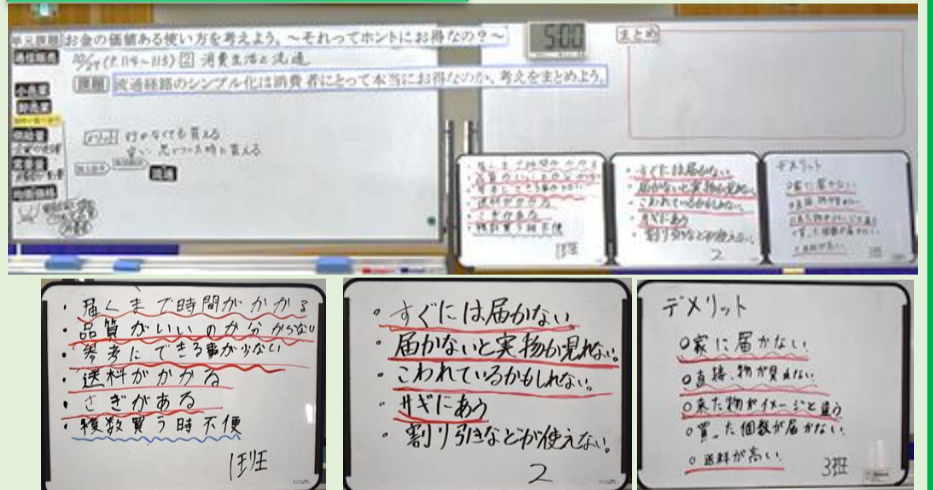 単元課題 お金の価値ある使い方を考えよう。～それってホントにお得なの？～
10/27 (P.114～115) ② 消費生活と流通
課題 流通経路のシンプル化は消費者にとって本当にお得なのか、考えをまとめよう。
通信販売
小売業
卸売業
供給量
需要量
均衡価格
メリット 行かなくても買える
安い 思いついた時に買える
流通
5:00
まとめ
・届くまで時間がかかる
・品質がいいのか分からない
・参考にできる事が少ない
・送料がかかる
・さぎがある
・複数買う時不便
1班
・すぐには届かない。
・届かないと実物が見れない。
・こわれているかもしれない。
・サギにあう
・割り引きなどが使えない。
2
デメリット
○家に届かない
○直接、物が見えない
○来た物がイメージと違う
○買った個数が届かない。
○送料が高い。
3班